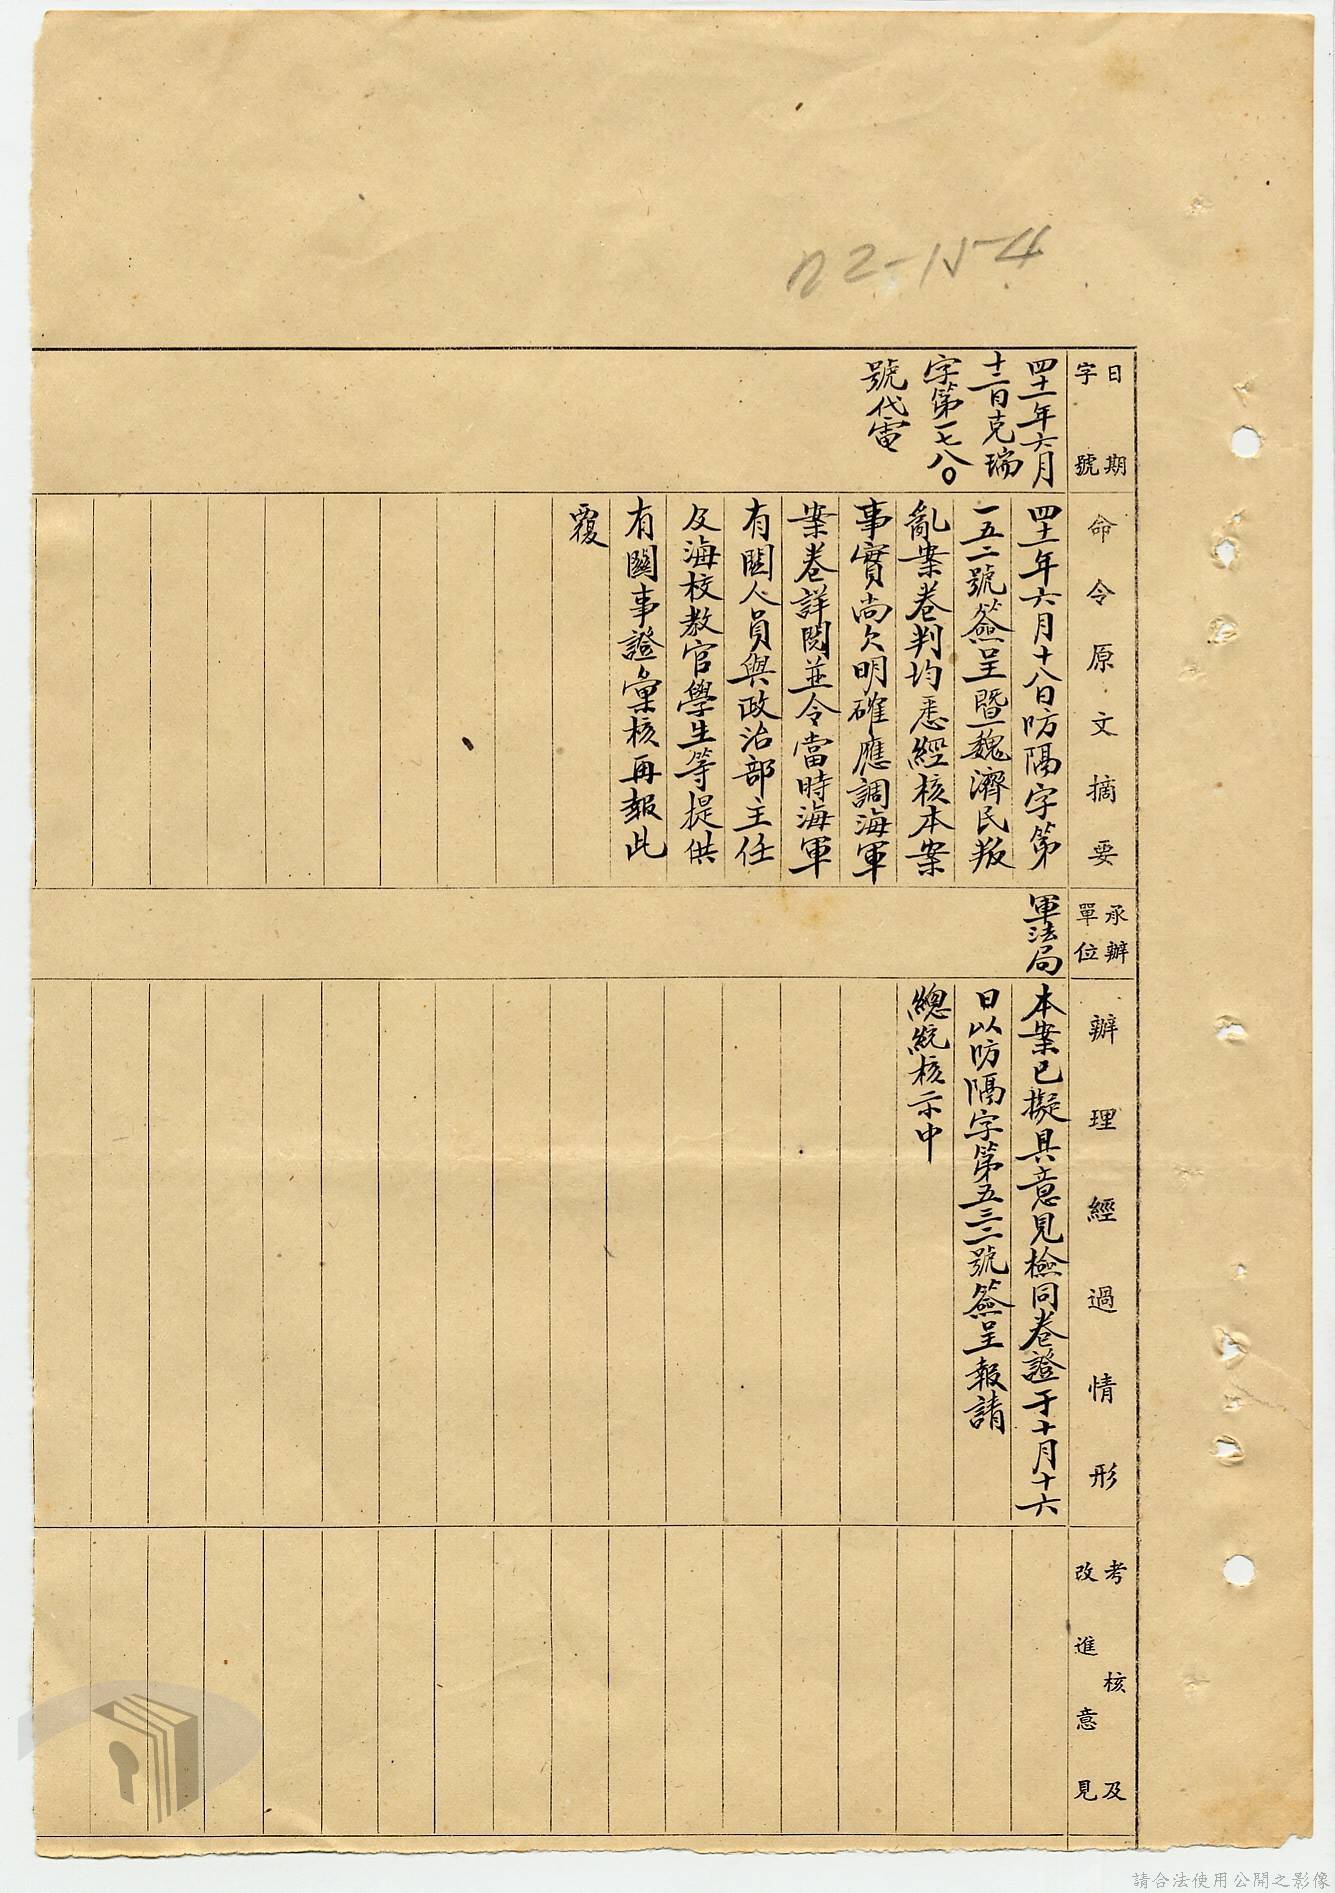 日期
字號
四十一年六月
十二日克瑞
字第一七八〇
號代電
命令原文摘要
四十一年六月十八日防隔字第
一五二號簽呈暨魏濟民叛
亂案卷判均悉經核本案
事實尚欠明確應調海軍
案卷詳閱並令當時海軍
有關人員與政治部主任
及海校教官學生等提供
有關事證彙核再報此
覆
承辦
單位
軍法局
辦理經過情形
本案已擬具意見檢同卷證于十月十六
日以防隔字第五三二號簽呈報請
總統核示中
考核及
改進意見
請合法使用公開之影像